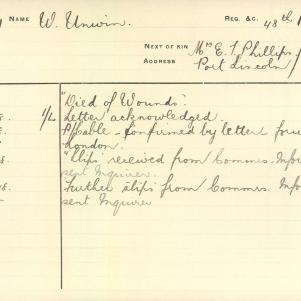 NAME W. Unwin REG. &C. 48th
NEXT OF KIN Mrs E. T. Phillips
ADDRESS Port Lincoln
"Died of Wounds".
Letter acknowledged.
P/Cable - Confirmed by letter
London.
"Slips" received from Commrs. Infor
sent Inquirer.
Further slips from Commrs. Info
sent Inquirer